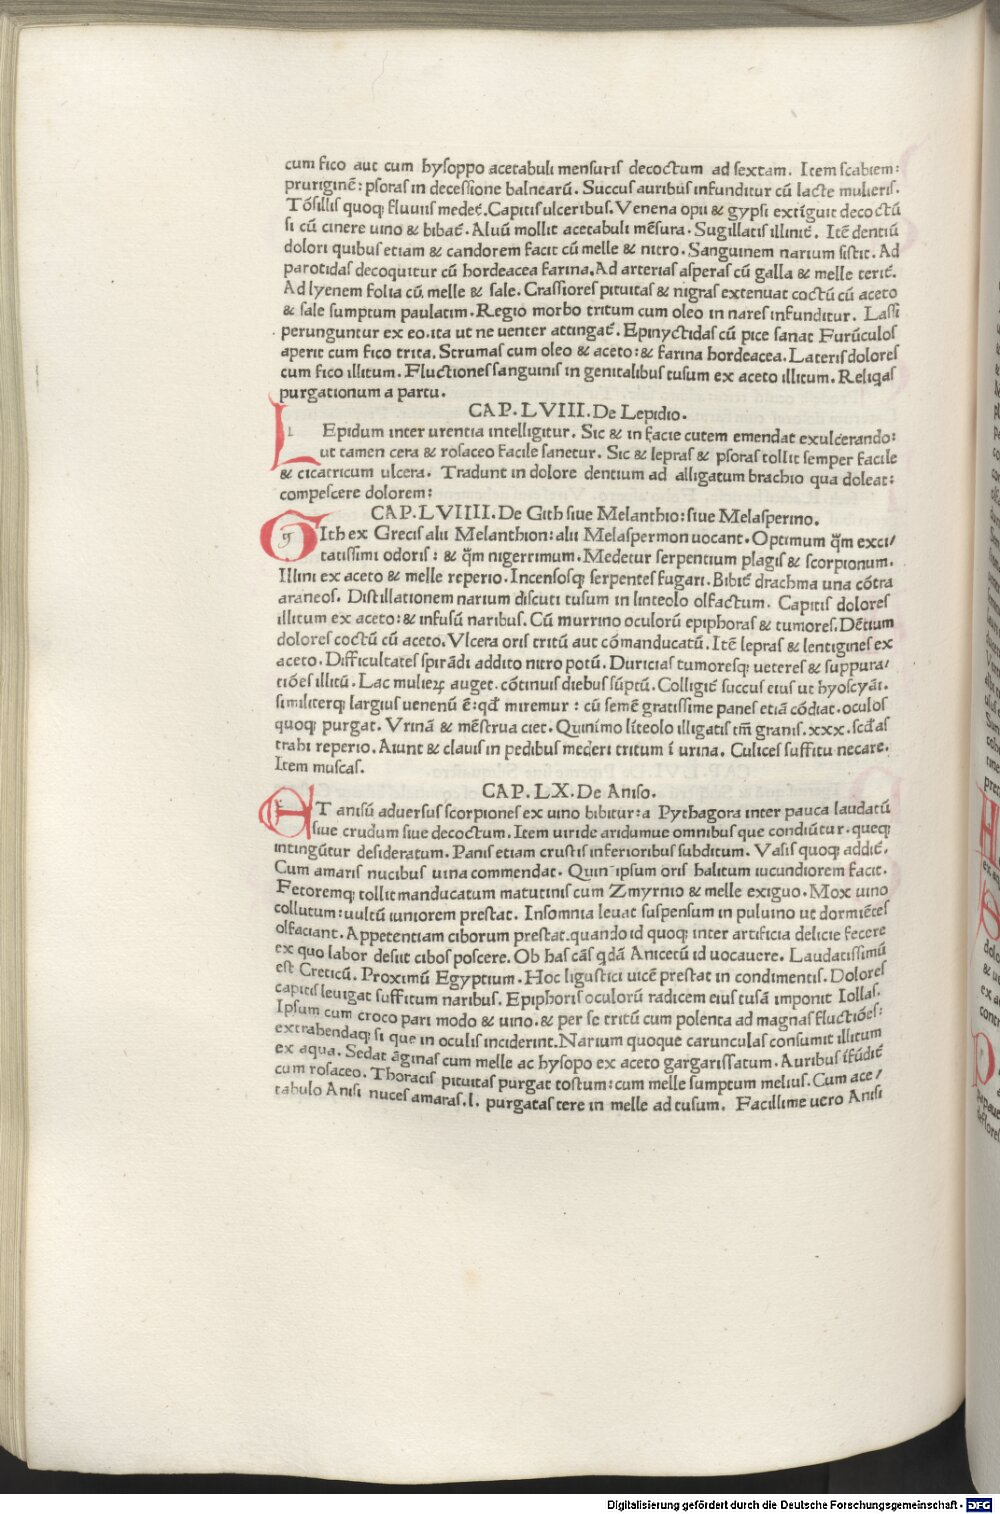 cum fico aut cum hysoppo acetabuli mensuris decoctum ad sextam. Item scabiem:
pruriginē: psoras in decessione balnearū. Succus auribus infunditur cū lacte mulieris.
Tōsillis quoq; fluuiis medet̄. Capitis ulceribus. Venena opii & gypsi extīguit decoctū
si cū cinere uino & bibat̄. Aluū mollit acetabuli mēsura. Sugillatis illinit̄. Itē dentiū
dolori quibus etiam & candorem facit cū melle & nitro. Sanguinem narium sistit. Ad
parotidas decoquitur cū hordeacea farina. Ad arterias asperas cū galla & melle terit̄.
Ad lyenem folia cū melle & sale. Crassiores pituitas & nigras extenuat coctū cū aceto
& sale sumptum paulatim. Regio morbo tritum cum oleo in nares infunditur. Lassi
perunguntur ex eo. ita ut ne uenter attingat̄. Epinyctidas cū pice sanat Furūculos
aperit cum fico trita. Strumas cum oleo & aceto: & farina hordeacea. Lateris dolores
cum fico illitum. Fluctiones sanguinis in genitalibus tusum ex aceto illitum. Reliqas
purgationum a partu.
CAP. LVIII. De Lepidio.
LEpidum inter urentia intelligitur. Sic & in facie cutem emendat exulcerando:
ut tamen cera & rosaceo facile sanetur. Sic & lepras & psoras tollit semper facile
& cicatricum ulcera. Tradunt in dolore dentium ad alligatum brachio qua doleat:
compescere dolorem:
CAP. LVIIII. De Gith siue Melanthio: siue Melasperino.
GIth ex Grecis alii Melanthion: alii Melaspermon uocant. Optimum q̄m exci/
tatissimi odoris: & q̄m nigerrimum. Medetur serpentium plagis & scorpionum.
Illini ex aceto & melle reperio. Incensosq; serpentes fugari. Bibit̄ drachma una cōtra
araneos. Distillationem narium discuti tusum in linteolo olfactum. Capitis dolores
illitum ex aceto: & infusū naribus. Cū murrino oculorū epiphoras & tumores. Dētium
dolores coctū cū aceto. Vlcera oris tritū aut cōmanducatū. Itē lepras & lentigines ex
aceto. Difficultates spirādi addito nitro potū. Duricias tumoresq; ueteres & suppura/
tiōes illitū. Lac mulieꝝ auget. cōtinuis diebus sūptū. Colligit̄ succus eius ut hyoscyāi.
similiterq; largius uenenū ē: qd̄ miremur: cū semē gratissime panes etiā cōdiat. oculos
quoq; purgat. Vrinā & mēstrua ciet. Quinimo līteolo illigatis tm̄ granis. xxx. scd̄as
trahi reperio. Aiunt & clauis in pedibus mederi tritum ī urina. Culices suffitu necare.
Item muscas.
CAP. LX. De Aniso.
AT anisū aduersus scorpiones ex uino bibitur: a Pythagora inter pauca laudatū
siue crudum siue decoctum. Item uiride aridumue omnibus que condiūtur. queq;
intingūtur desideratum. Panis etiam crustis inferioribus subditum. Vasis quoq; addit̄.
Cum amaris nucibus uina commendat. Quin ipsum oris halitum iucundiorem facit.
Fetoremq; tollit manducatum matutinis cum Zmyrnio & melle exiguo. Mox uino
collutum: uultū iuniorem prestat. Insomnia leuat suspensum in puluino ut dormiētes
olfaciant. Appetentiam ciborum prestat. quando id quoq; inter artificia delicie fecere
ex quo labor desiit cibos poscere. Ob has cās qdā Anicetū id uocauere. Laudatissimū
est Creticū. Proximū Egyptium. Hoc ligustici uicē prestat in condimentis. Dolores
capitis leuigat suffitum naribus. Epiphoris oculorū radicem eius tusā imponit Iollas.
Ipsum cum croco pari modo & uino. & per se tritū cum polenta ad magnas fluctiōes:
extrahendaq; si que in oculis inciderint. Narium quoque carunculas consumit illitum
ex aqua. Sedat āginas cum melle ac hysopo ex aceto gargarissatum. Auribus īfūdit̄
cum rosaceo. Thoracis pituitas purgat tostum: cum melle sumptum melius. Cum ace/
tabulo Anisi nuces amaras. l. purgatas tere in melle ad tusum. Facillime uero Anisi
Digitalisierung gefördert durch die Deutsche Forschungsgemeinschaft - DFG